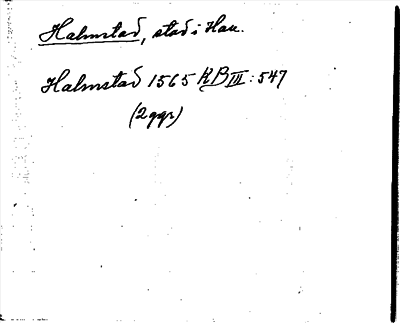 Halmstad, stad i Hall.
Halmstad 1565 RB III: 547
(2 ggr)